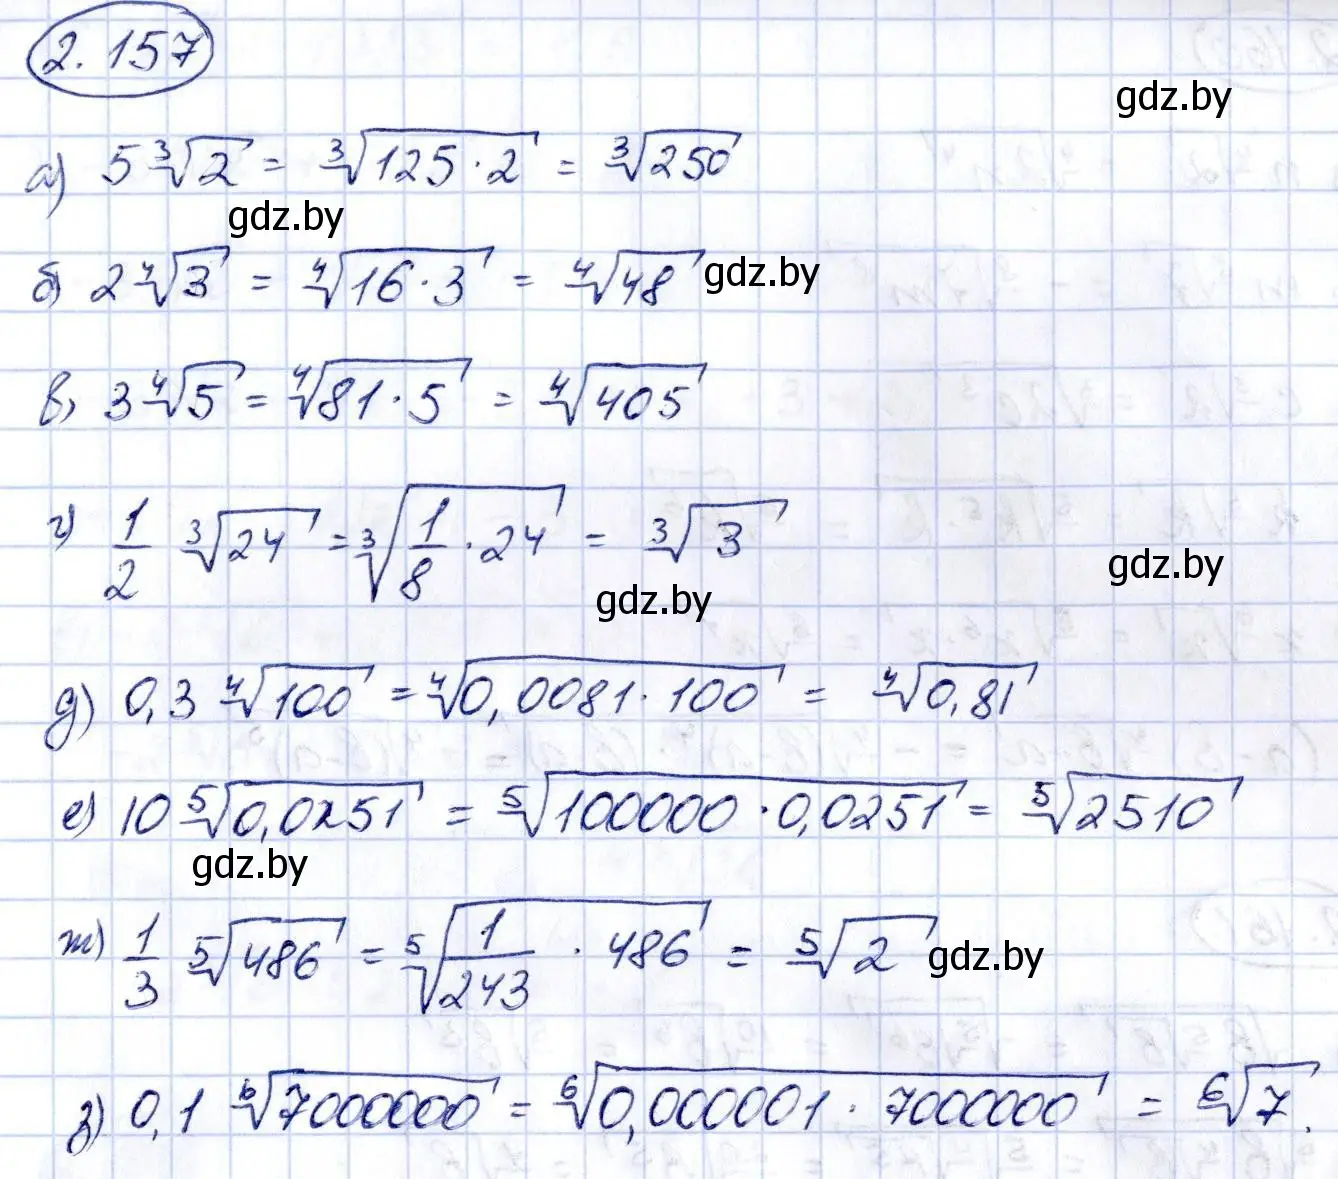 2.157
gdz.by
а) 5∛2 = ∛(125·2) = ∛250
gdz.by
б) 2∜3 = ∜(16·3) = ∜48 gdz.by
в) 3∜5 = ∜(81·5) = ∜405
г) 1/2 ∛24 = ∛(1/8 · 24) = ∛3
gdz.by
gdz.by
д) 0,3 ∜100 = ∜(0,0081·100) = ∜0,81
е) 10 ⁵√0,0251 = ⁵√(100000·0,0251) = ⁵√2510
gdz.by
ж) 1/3 ⁵√486 = ⁵√(1/243 · 486) = ⁵√2 gdz.by
з) 0,1 ⁶√7000000 = ⁶√(0,000001·7000000) = ⁶√7.